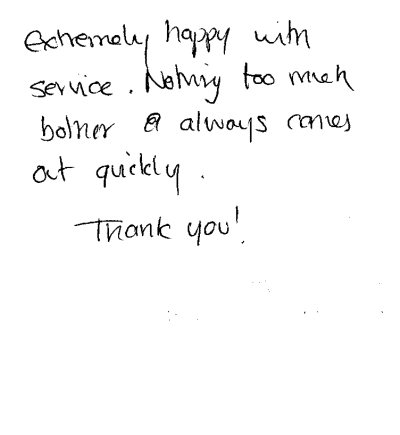 Extremely happy with
service. Nothing too much
bother & always comes
out quickly.
Thank you!